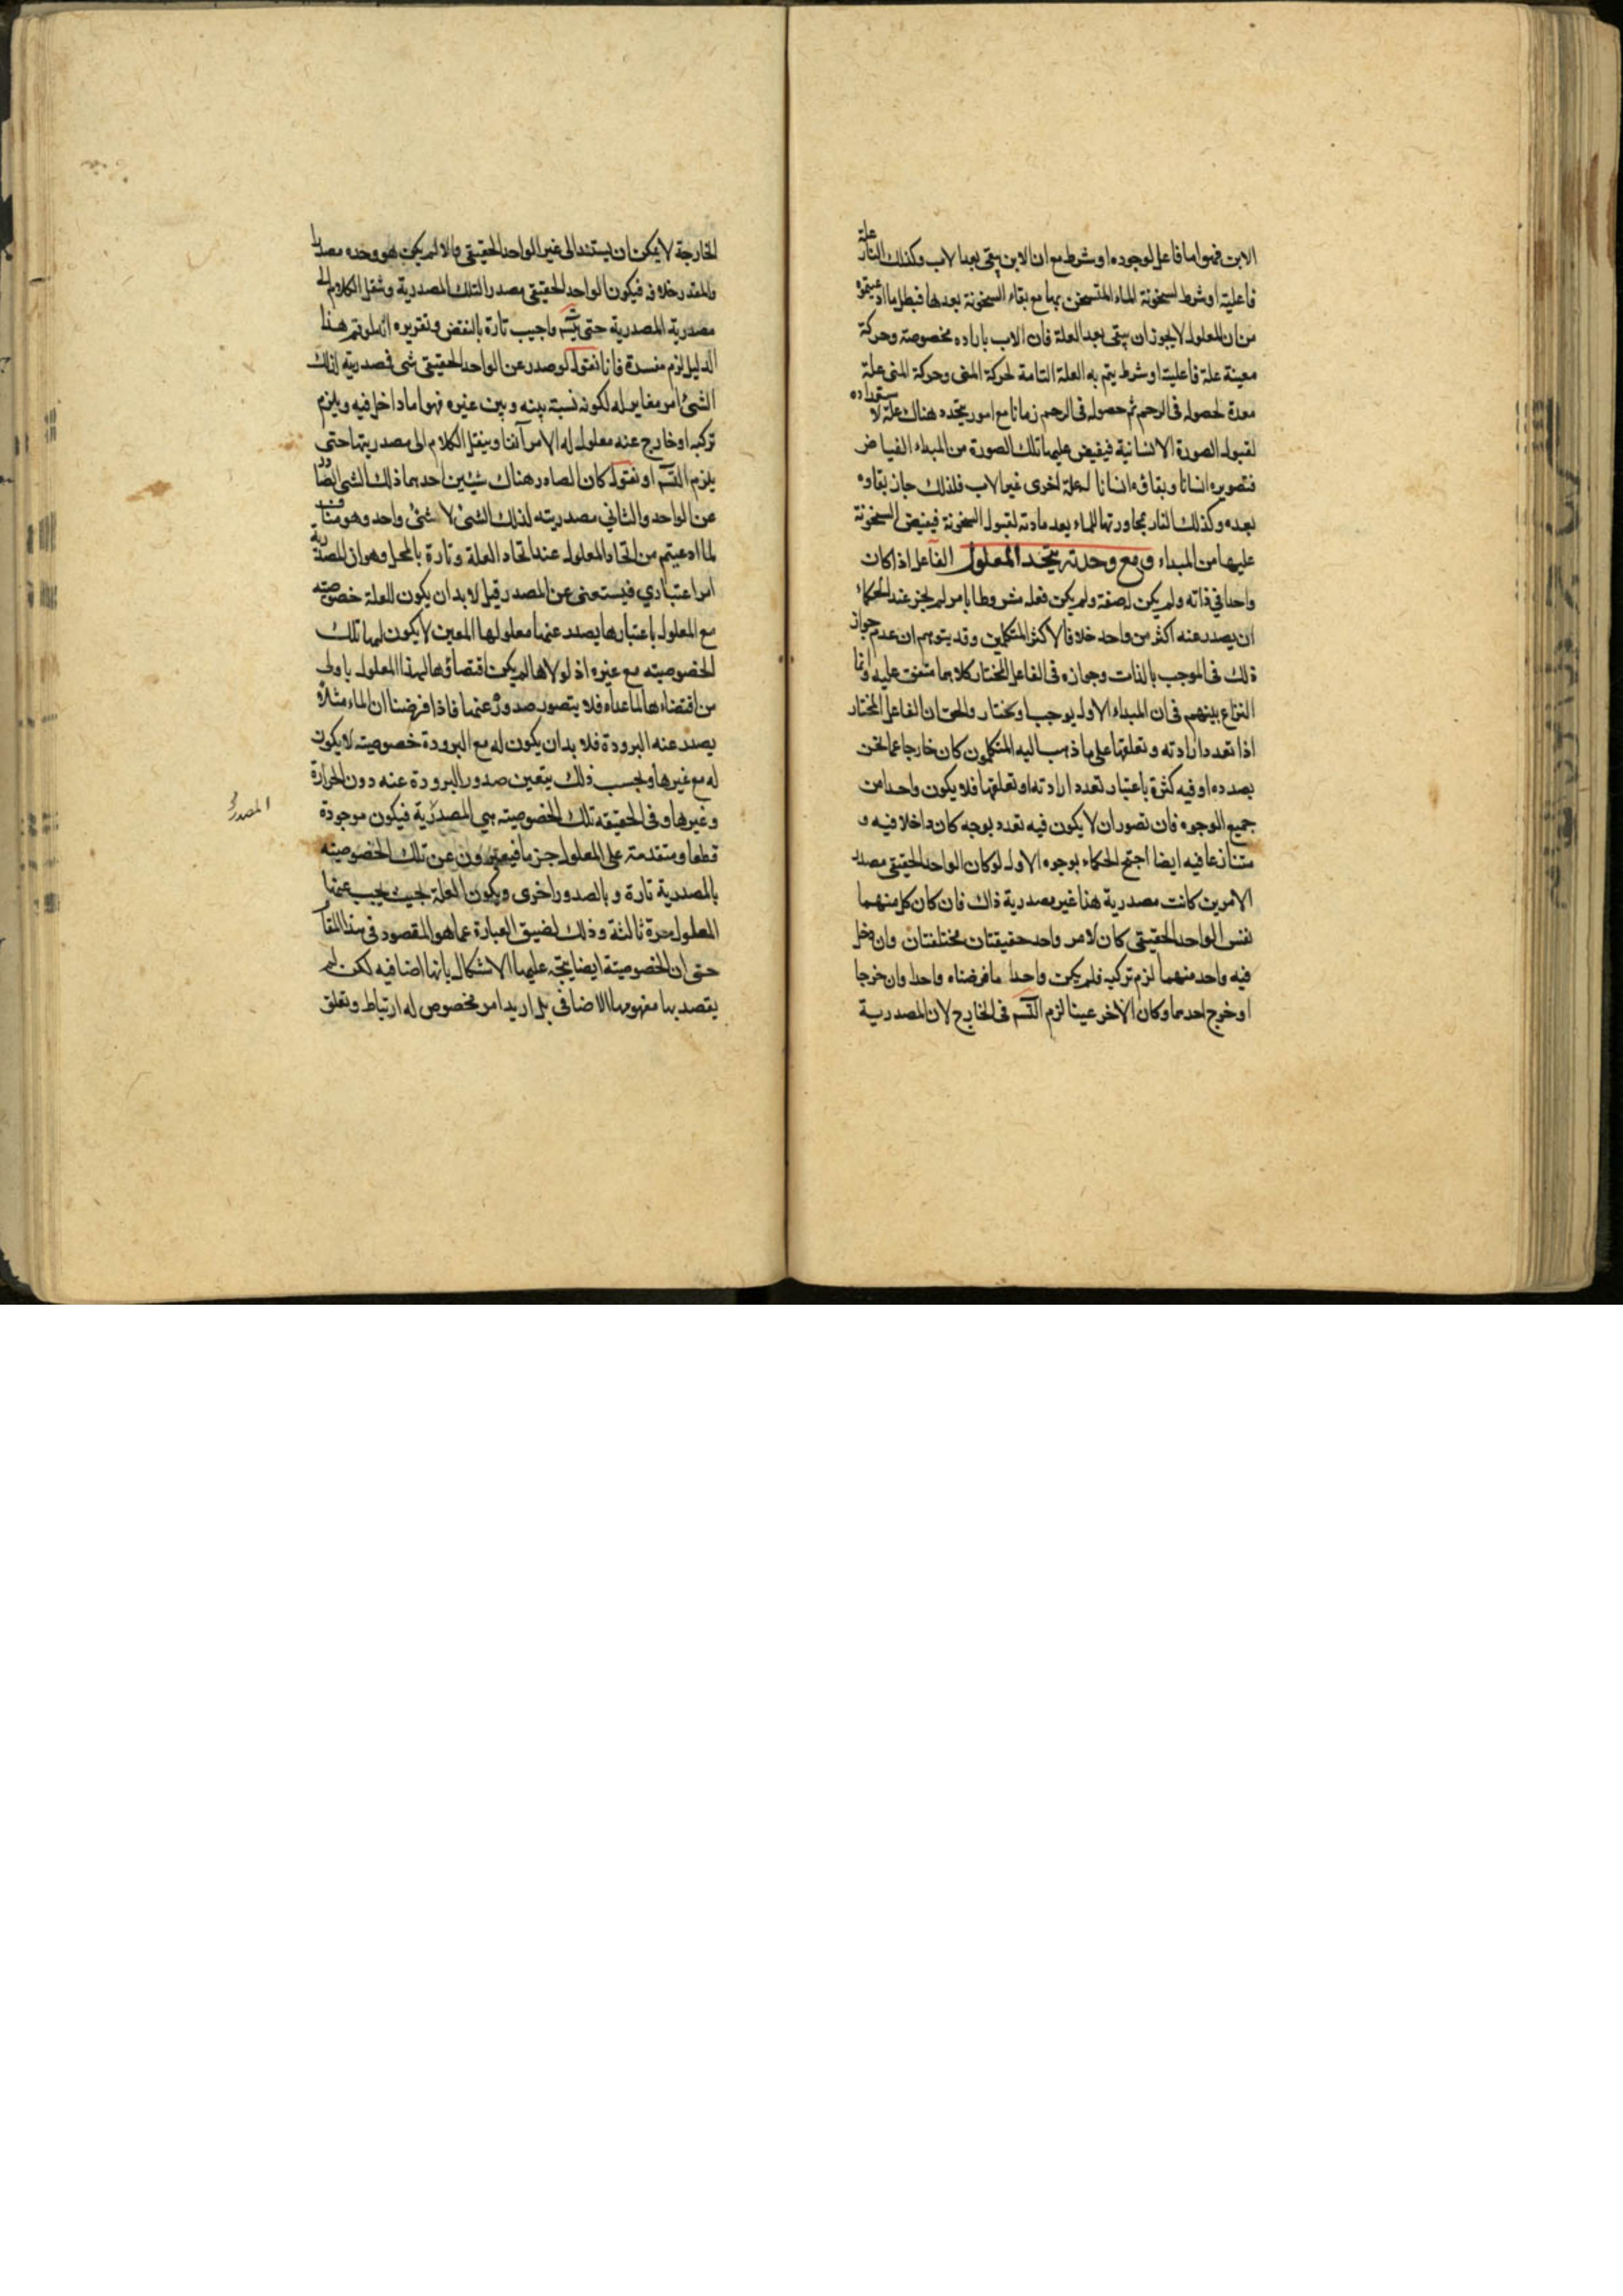 الابن فهو اما فاعل لوجوده او شرط مع ان الابن يبقى بعد الاب وكذلك النار علة
فاعلية او شرط لسخونة الماء المتسخن بها مع بقاء السخونة بعدها فبطل ما ادعيتموه
من ان المعلول لا يجوز ان يبقى بعد العلة فان الاب باراده مخصوصة وحركة
معينة علة فاعلية او شرط يتم به العلة التامة لحركة المنى وحركة المنى علة
معدة لحصوله فى الرحم ثم حصوله فى الرحم زمانا مع امور يتجدد هناك علة لاستعداده
لقبول الصورة الانسانية فيفيض عليها تلك الصورة من المبداء الفياض
فتصويره انسانا وبقاؤه انسانا لعلة اخرى غير الاب فلذلك جاز بقاوه
بعده وكذلك النار بمجاورتها للماء يعد مادته لقبول السخونة فيفيض السخونة
عليها من المبداء ومع وحدته يتحد المعلول الفاعل اذا كان
واحدا فى ذاته ولم يكن له صفة ولم يكن فعله مشروطا بامر لم يجز عند الحكماء
ان يصدر عنه اكثر من واحد خلافا لاكثر المتكلمين وقد يتوهم ان عدم جواز
ذلك فى الموجب بالذات وجوازه فى الفاعل المختار كلاهما متفق عليه وانما
النزاع بينهم فى ان المبداء الاول يوجب او يختار والحق ان الفاعل المختار
اذا تعدد ارادته وتعلقها على ما ذهب اليه المتكلمون كان خارجا عما نحن
بصدده او فيه كثرة باعتبار تعدد ارادته او تعلقها فلا يكون واحدا من
جميع الوجوه فان تصور ان لا يكون فيه تعدد بوجه كان داخلا فيه و
متنازعا فيه ايضا احتج الحكماء بوجوه الاول لو كان الواحد الحقيقى مصدر
الامرين كانت مصدرية هذا غير مصدرية ذاك فان كان كل منهما
نفس الواحد الحقيقى كان لامر واحد حقيقتان مختلفتان وان دخل
فيه واحد منهما لزم تركيبه فلم يكن واحدا ما فرضناه واحدا وان خرجا
او خرج احدهما وكان الاخر عينا لزم التسّ فى الخارج لان المصدرية
الخارجة لا يمكن ان يستند الى غير الواحد الحقيقى والا لم يكن هو وحده مصدرا
والمقدر خلافه فيكون الواحد الحقيقى مصدرا لتلك المصدرية وننقل الكلام الى
مصدرية المصدرية حتى يتسّ واجيب تارة بالنقض وتقريره انه لو تم هذا
الدليل لزم مفسدة فانا نقول لو صدر عن الواحد الحقيقى شى فمصدريته لذلك
الشئ امر مغاير له لكونه نسبة بينه وبين غيره فهو اما داخل فيه ويلزم
تركبه او خارج عنه معلول له لامر آنفا وينقل الكلام الى مصدريتها حتى
يلزم التسّ او نقول كان الصادر هناك شيئين احدهما ذلك الشى الصادر
عن الواحد والثانى مصدريته لذلك الشئ لا شئ واحد وهو مناف
لما ادعيتم من اتحاد المعلول عند اتحاد العلة وتارة بالحل وهو ان المصدرية
امر اعتبارى فيستغنى عن المصدر قيل لا بد ان يكون للعلة خصوصية
مع المعلول باعتبارها يصدر عنها معلولها المعين لا يكون لها تلك
الخصوصية مع غيره اذ لولاها لم يكن اقتضاؤها لهذا المعلول باولى
من اقتضاءها لما عداه فلا يتصور صدوره عنها فاذا فرضنا ان الماء مثلا
يصدر عنه البرودة فلا بد ان يكون له مع البرودة خصوصية لا يكون
له مع غيرها وبحسب ذلك يتعين صدور البرودة عنه دون الحرارة
وغيرها وفى الحقيقة تلك الخصوصية هى المصدرية فيكون موجودة
المصدر
قطعا ومتقدمة على المعلول جزما فيعبرون عن تلك الخصوصية
بالمصدرية تارة وبالصدور اخرى وبكون العلة بحيث يجب عنها
المعلول مرة ثالثة وذلك لضيق العبارة عما هو المقصود فى هذا المقام
حتى ان الخصوصية ايضا يتجه عليها الاشكال بانها اضافية لكن لم
يقصد بها مفهومها الاضافى بل اريد امر مخصوص له ارتباط وتعلق